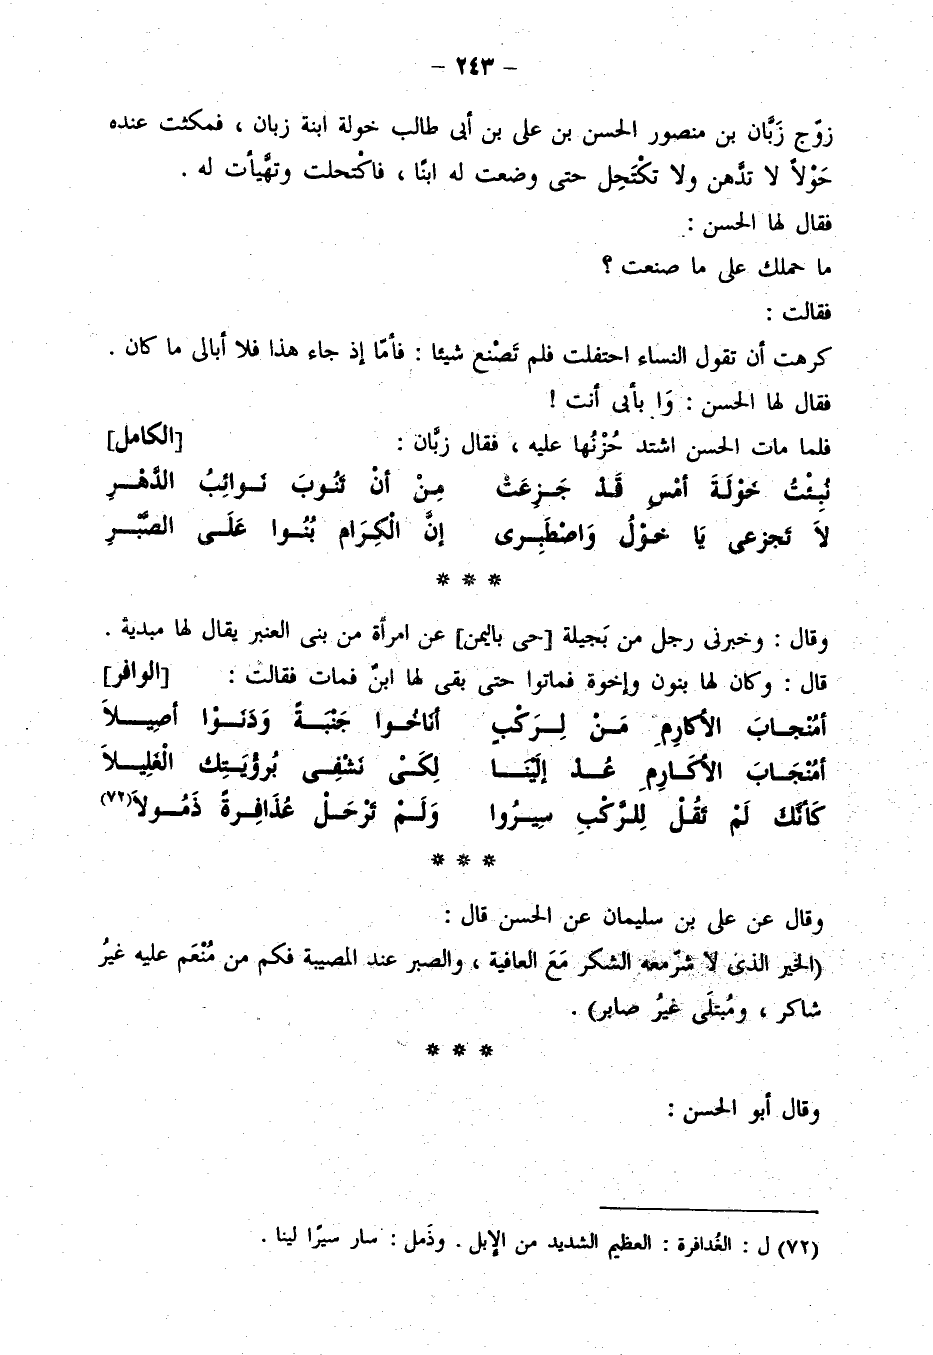 - ٢٤٣ -
زوّج زَبَّان بن منصور الحسن بن على بن أبى طالب خولة ابنة زبان ، فمكثت عنده
حَوْلاً لا تدَّهن ولا تكْتَحِل حتى وضعت له ابنًا ، فاكْتحلت وتهَّيأت له .
فقال لها الحسن :
ما حملك على ما صنعت ؟
فقالت :
كرهت أن تقول النساء احتفلت فلم تَصْنع شيئا : فأمّا إذ جاء هذا فلا أبالى ما كان .
فقال لها الحسن : وَا بأبى أنت !
فلما مات الحسن اشتد حُزْنُها عليه ، فقال زبَّان : [الكامل]
نُبِئْتُ خَوْلَةَ أمْسِ قَدْ جَزِعَتْ مِنْ أنْ تَنُوبَ نَوائِبُ الدَّهْرِ
لاَ تَجزعى يَا خوْلُ وَاصْطَبِرى إنَّ الْكِرَام بُنُوا عَلَى الصَّبْرِ
* * *
وقال : وخبرنى رجل من بَجيلة [حى باليمن] عن امرأة من بنى العنبر يقال لها مبدية .
قال : وكان لها بنون وإخوة فماتوا حتى بقى لها ابنٌ فمات فقالت : [الوافر]
أمُنْجابَ الأكارِمِ مَنْ لِرَكْبٍ أنَاخُوا جَنْبَةً وَدَنَوْا أصِيلاَ
أمُنْجَابَ الأكَارِمِ عُدْ إلَيْنَا لِكَىْ نَشْفِى بُرؤْيَتِك الْغَلِيلاَ
كَأنَّكَ لَمْ تَقُلْ لِلرَّكْبِ سِيرُوا وَلَمْ تَرْحَلْ عُذَافِرةً ذَمُولاَ(٧٢)
* * *
وقال عن على بن سليمان عن الحسن قال :
(الخير الذى لا شرّمعه الشكر مَعَ العافية ، والصبر عند المصيبة فكم من مُنْعَم عليه غيرُ
شاكر ، ومُبتلَى غيرُ صابر) .
* * *
وقال أبو الحسن :
(٧٢) ل : العُدافرة : العظيم الشديد من الإبل . وذَمل : سار سيرًا لينا .